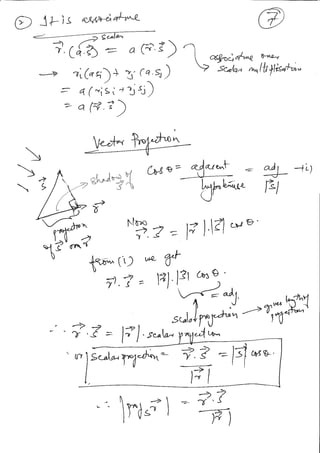 ③ It is associative ⑦
→ scalar
r⃗.(a.s⃗) = a(r⃗.s⃗)
associative over scalar multiplication
→ ri(asi) + rj(a.sj)
= a(risi + rjsj)
= a(r⃗.s⃗)
Vector Projection
s⃗ shadow of s⃗
cos θ = adjacent / hypotenuse = adj / |s⃗| → i)
r⃗
projection of s⃗ on r⃗
Now
r⃗.s⃗ = |r⃗|.|s⃗| cos θ.
from (i) we get
r⃗.s⃗ = |r⃗|.|s⃗| cos θ.
= adj.
scalar projection → gives length of projection
∴ r⃗.s⃗ = |r⃗|.scalar projection
or, scalar projection = r⃗.s⃗ / |r⃗| = |s⃗| cos θ.
∴ |proj s r⃗| = r⃗.s⃗ / |r⃗|